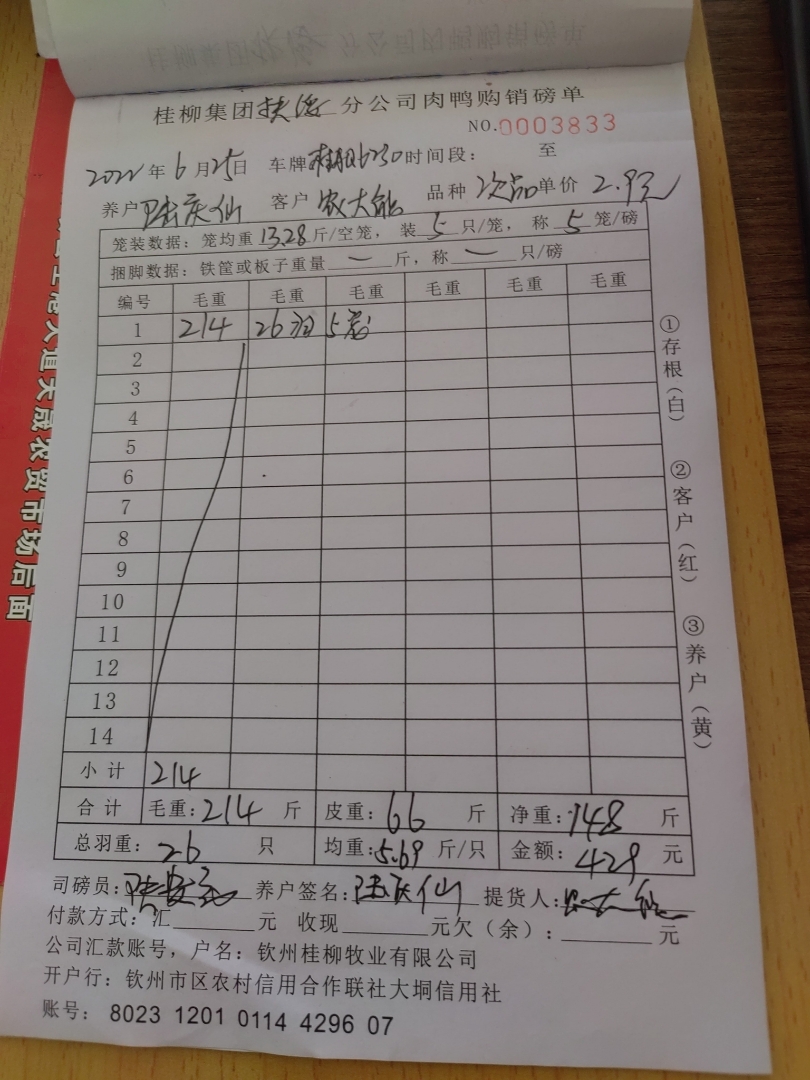 桂柳集团扶绥分公司肉鸭购销磅单
NO.0003833
2022年6月25日 车牌桂 时间段: 至
养户陆庆仙 客户农大能 品种次品单价2.9元
笼装数据: 笼均重13.28斤/空笼, 装5只/笼, 称5笼/磅
捆脚数据: 铁筐或板子重量一斤, 称一只/磅
编号 毛重 毛重 毛重 毛重 毛重 毛重
1 214 26羽 5笼
2
3
4
5
6
7
8
9
10
11
12
13
14
小计 214
合计 毛重:214斤 皮重:66斤 净重:148斤
总羽重:26只 均重:5.69斤/只 金额:429元
司磅员: 养户签名:陆庆仙 提货人:农大能
付款方式: 汇 元 收现 元欠(余): 元
公司汇款账号, 户名: 钦州桂柳牧业有限公司
开户行: 钦州市区农村信用合作联社大垌信用社
账号: 8023 1201 0114 4296 07
①存根(白)
②客户(红)
③养户(黄)
大道天晟农贸市场后面